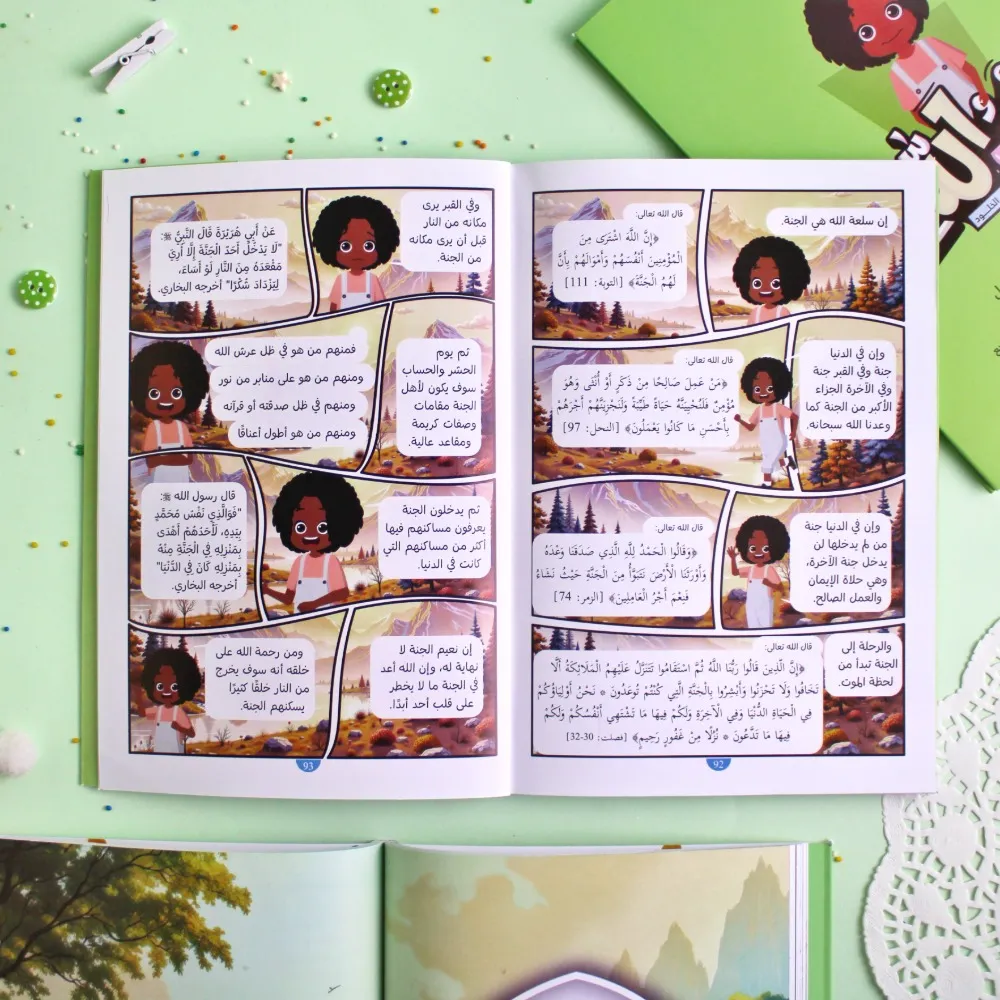 إن سلعة الله هي الجنة.
قال الله تعالى:
﴿إِنَّ اللَّهَ اشْتَرَى مِنَ
الْمُؤْمِنِينَ أَنْفُسَهُمْ وَأَمْوَالَهُمْ بِأَنَّ
لَهُمُ الْجَنَّةَ﴾ [التوبة: 111]
وإن في الدنيا
جنة وفي القبر جنة
وفي الآخرة الجزاء
الأكبر من الجنة كما
وعدنا الله سبحانه.
قال الله تعالى:
﴿مَنْ عَمِلَ صَالِحًا مِنْ ذَكَرٍ أَوْ أُنْثَى وَهُوَ
مُؤْمِنٌ فَلَنُحْيِيَنَّهُ حَيَاةً طَيِّبَةً وَلَنَجْزِيَنَّهُمْ أَجْرَهُمْ
بِأَحْسَنِ مَا كَانُوا يَعْمَلُونَ﴾ [النحل: 97]
وإن في الدنيا جنة
من لم يدخلها لن
يدخل جنة الآخرة،
وهي حلاة الإيمان
والعمل الصالح.
قال الله تعالى:
﴿وَقَالُوا الْحَمْدُ لِلَّهِ الَّذِي صَدَقَنَا وَعْدَهُ
وَأَوْرَثَنَا الْأَرْضَ نَتَبَوَّأُ مِنَ الْجَنَّةِ حَيْثُ نَشَاءُ
فَنِعْمَ أَجْرُ الْعَامِلِينَ﴾ [الزمر: 74]
والرحلة إلى
الجنة تبدأ من
لحظة الموت.
قال الله تعالى:
﴿إِنَّ الَّذِينَ قَالُوا رَبُّنَا اللَّهُ ثُمَّ اسْتَقَامُوا تَتَنَزَّلُ عَلَيْهِمُ الْمَلَائِكَةُ أَلَّا
تَخَافُوا وَلَا تَحْزَنُوا وَأَبْشِرُوا بِالْجَنَّةِ الَّتِي كُنْتُمْ تُوعَدُونَ * نَحْنُ أَوْلِيَاؤُكُمْ
فِي الْحَيَاةِ الدُّنْيَا وَفِي الْآخِرَةِ وَلَكُمْ فِيهَا مَا تَشْتَهِي أَنْفُسُكُمْ وَلَكُمْ
فِيهَا مَا تَدَّعُونَ * نُزُلًا مِنْ غَفُورٍ رَحِيمٍ﴾ [فصلت: 30-32]
92
وفي القبر يرى
مكانه من النار
قبل أن يرى مكانه
من الجنة.
عَنْ أَبِي هُرَيْرَةَ قَالَ النَّبِيُّ ﷺ:
"لَا يَدْخُلُ أَحَدٌ الْجَنَّةَ إِلَّا أُرِيَ
مَقْعَدَهُ مِنَ النَّارِ لَوْ أَسَاءَ،
لِيَزْدَادَ شُكْرًا" أخرجه البخاري.
ثم يوم
الحشر والحساب
سوف يكون لأهل
الجنة مقامات
وصفات كريمة
ومقاعد عالية.
فمنهم من هو في ظل عرش الله
ومنهم من هو على منابر من نور
ومنهم في ظل صدقته أو قرآنه
ومنهم من هو أطول أعناقًا
ثم يدخلون الجنة
يعرفون مساكنهم فيها
أكثر من مساكنهم التي
كانت في الدنيا.
قال رسول الله ﷺ:
"فَوَالَّذِي نَفْسُ مُحَمَّدٍ
بِيَدِهِ، لَأَحَدُهُمْ أَهْدَى
بِمَنْزِلِهِ فِي الْجَنَّةِ مِنْهُ
بِمَنْزِلِهِ كَانَ فِي الدُّنْيَا"
أخرجه البخاري.
إن نعيم الجنة لا
نهاية له، وإن الله أعد
في الجنة ما لا يخطر
على قلب أحد أبدًا.
ومن رحمة الله على
خلقه أنه سوف يخرج
من النار خلقًا كثيرًا
يسكنهم الجنة.
93